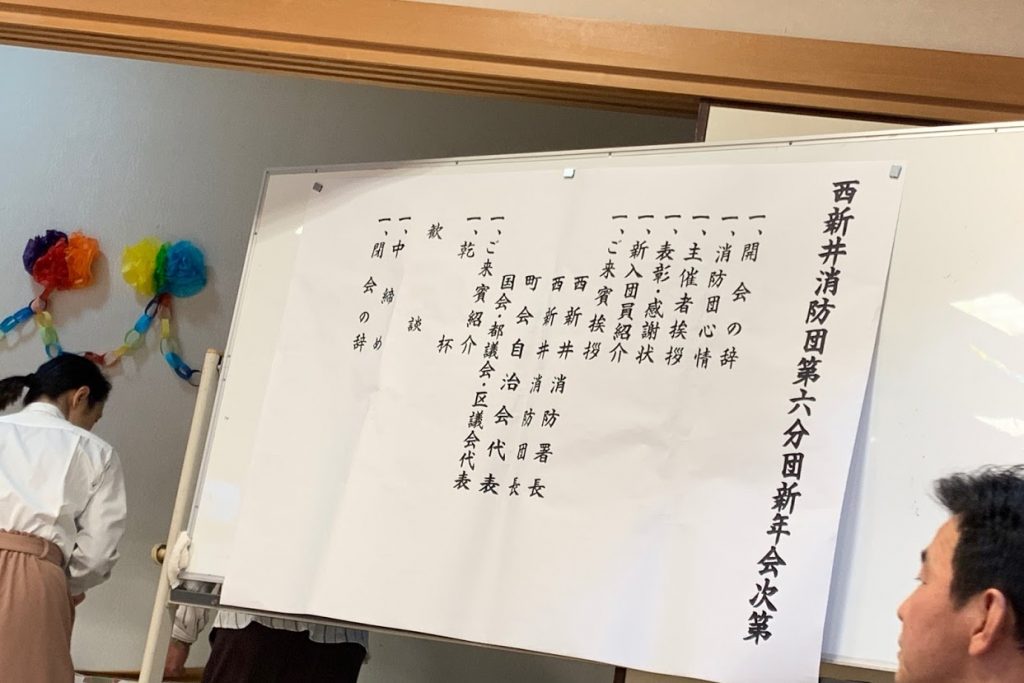 西新井消防団第六分団新年会次第
一、開会の辞
一、消防団心情
一、主催者挨拶
一、表彰・感謝状
一、新入団員紹介
一、ご来賓挨拶
西新井消防署長
西新井消防団長
町会自治会代表
国会・都議会・区議会代表
一、ご来賓紹介
一、乾杯
歓談
一、中締め
一、閉会の辞